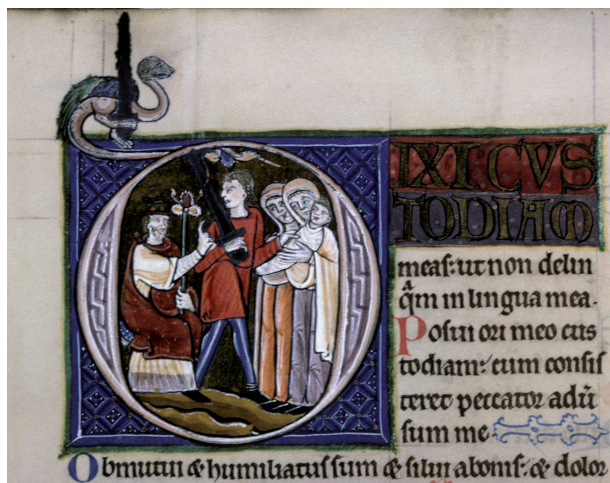 DIXI CVS
TODIAM
meaſ: ut non delin
qͣm in lingua mea.
Poſui ori meo cuſ
todiam: cum conſiſ
teret peccator adũ
ſum me
Obmutui & humiliatuſ ſum & ſilui abonif: & dolor